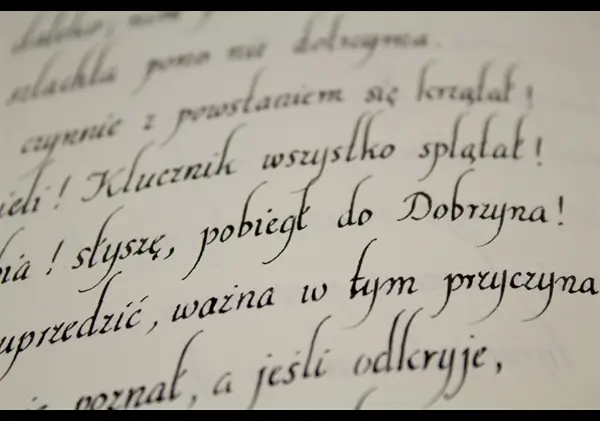 daleko, nim
szlachta pono nie dotrzyma.
czynnie z powstaniem się krzątał!
ieli! Klucznik wszystko splątał!
bia! słyszę, pobiegł do Dobrzyna!
uprzedzić, ważna w tym przyczyna
poznał, a jeśli odkryje,